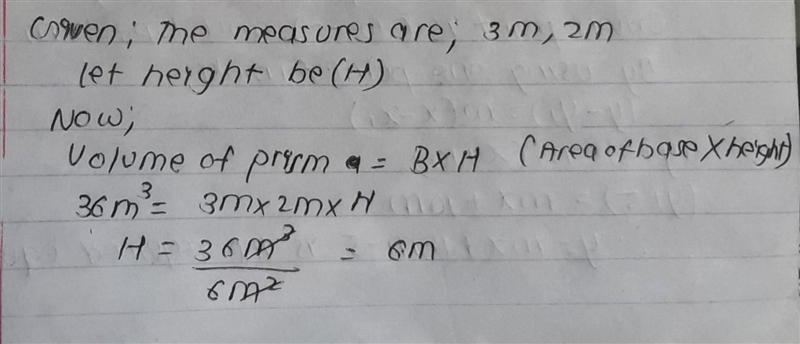 Given; The measures are; 3m, 2m
let height be (H)
Now;
Volume of prism = B×H (Area of base × height)
36m³ = 3m×2m×H
H = 36m³/6m² = 6m